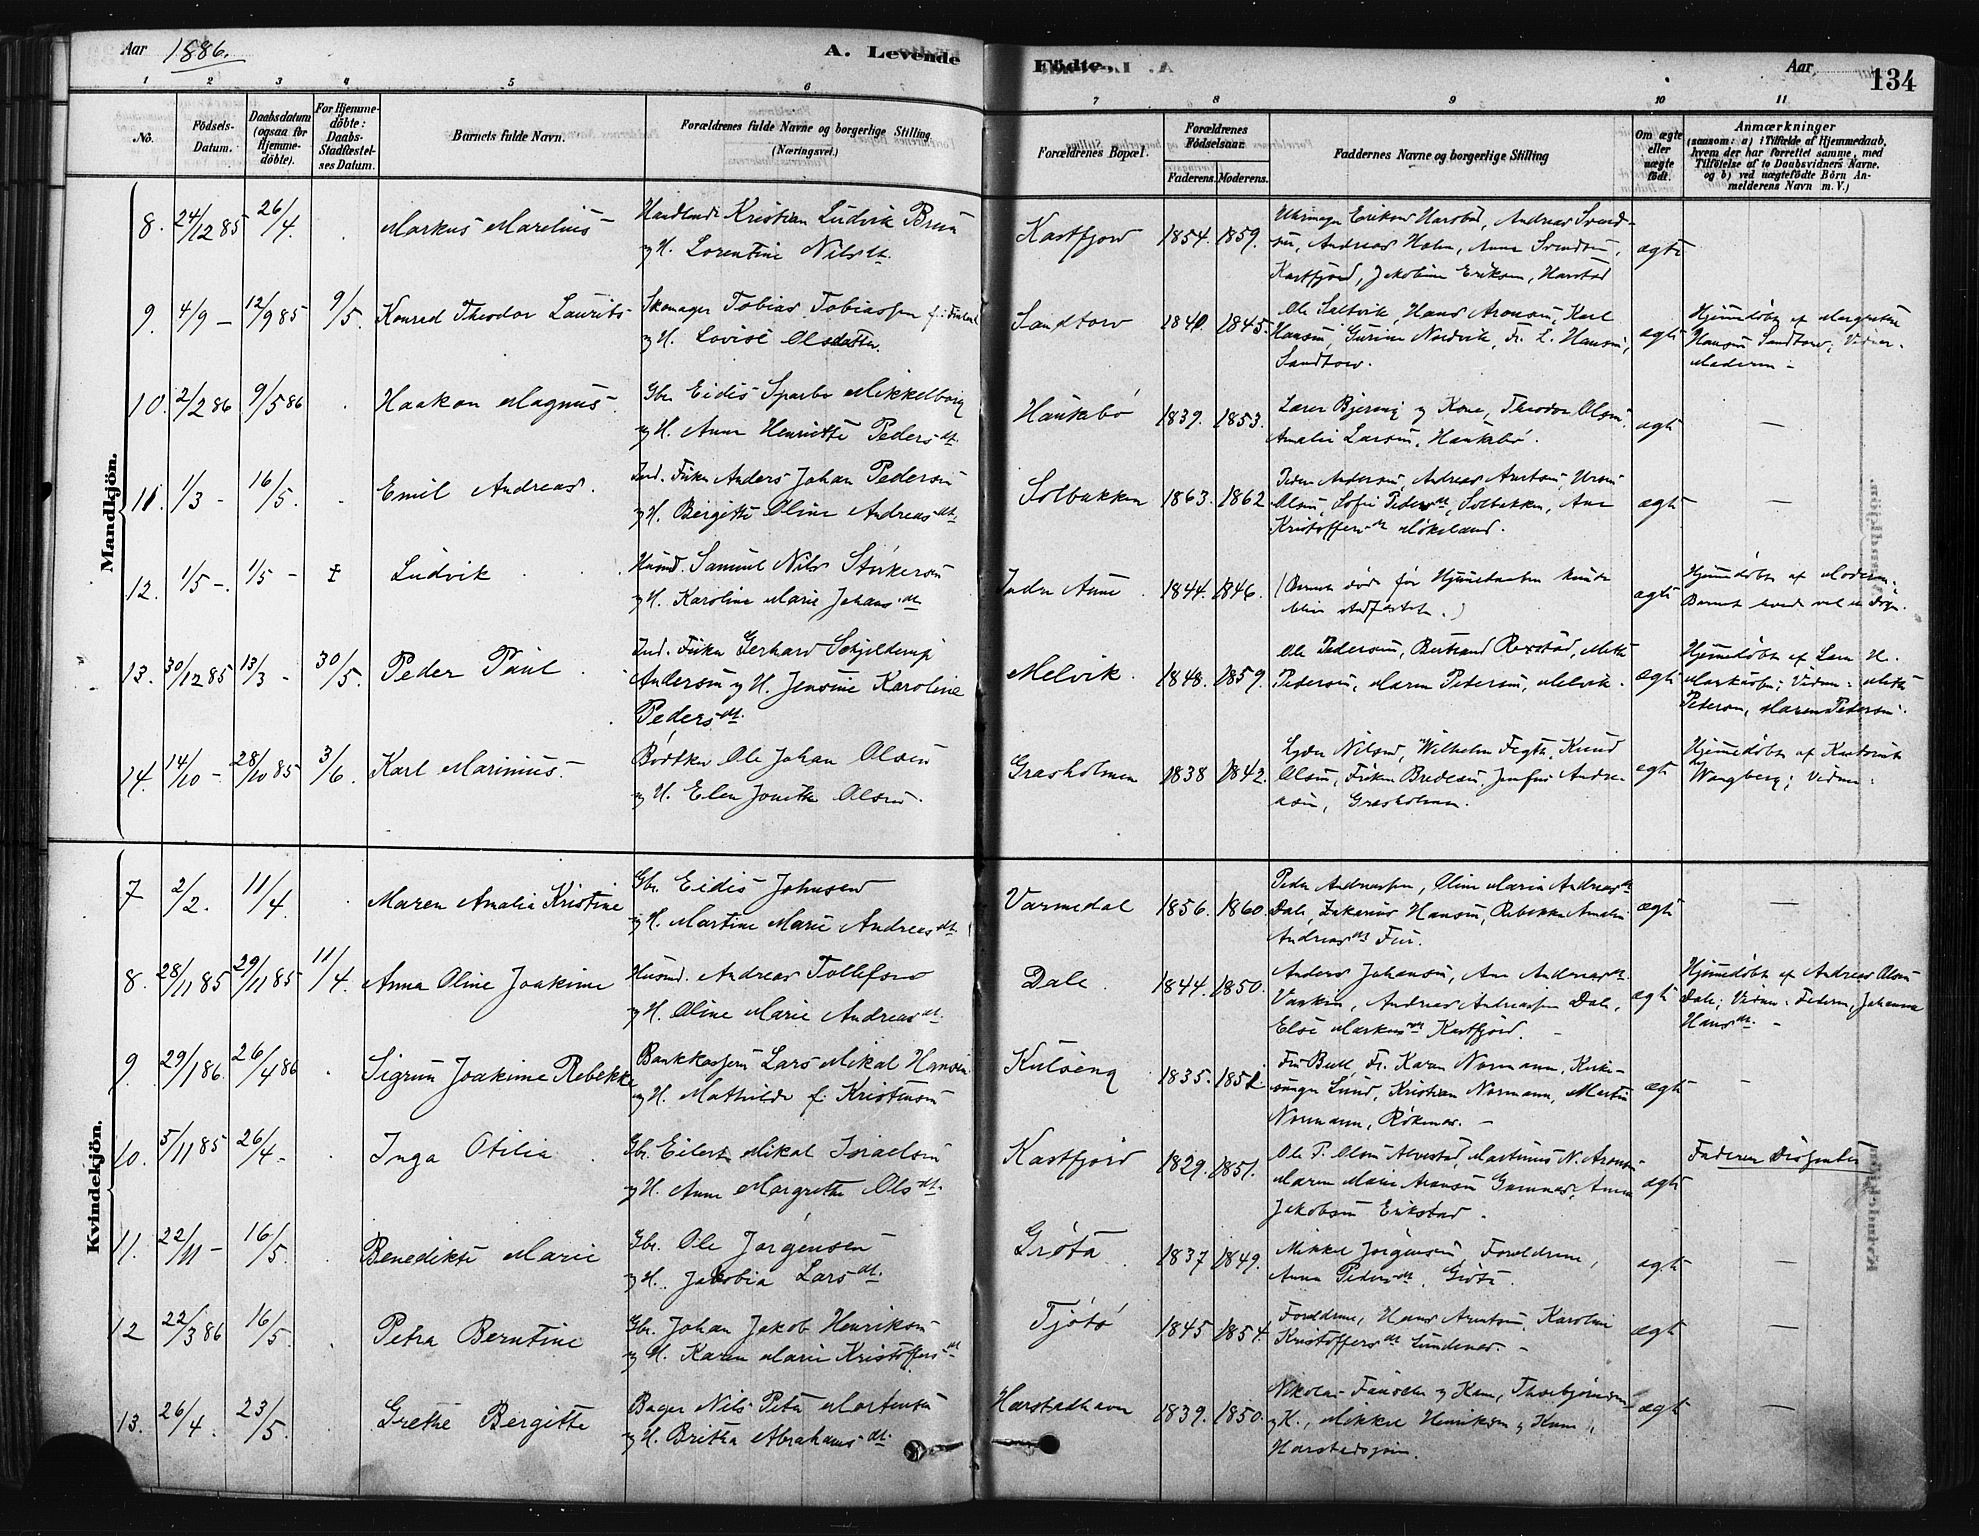 Aar 1886.
A. Levende Födte.
Aar
134
1 2 3 4 5 6 7 8 9 10 11
No.
Födsels-Datum.
Daabsdatum (ogsaa for Hjemme-döbte).
For Hjemme-döbte: Daabs-Stadfæstel-ses Datum.
Barnets fulde Navn.
Forældrenes fulde Navne og borgerlige Stilling. (Næringsvei.)
Forældrenes Bopæl.
Forældrenes Födselsaar.
Faderens. Moderens.
Faddernes Navne og borgerlige Stilling
Om ægte eller uægte födt.
Anmærkninger
(saasom: a) i Tilfælde af Hjemmedaab, hvem der har forrettet samme, med Tilföielse af to Daabsvidners Navne, og b) ved uægtefödte Börn An-melderens Navn m. V.)
Mandkjön.
8. 24/12 85 26/4. Markus Marelius
Kristian Ludvik
og H. Lorentine Nilsdt.
Kastfjord 1854. 1859.
Andreas Svend-
sen, Andreas Holm, Anna Svendsen,
Kastfjord, Jakobine Eriksen, Harstad
ægte
9. 4/9 - 12/9 85 9/5. Konrad Theodor Laurits
Skomager Tobias Tobiassen
og H. Lovise Olsdatter.
Sandtorv 1840. 1845.
Hans Aronsen, Karl
Hansen, Nordvik, Fr. L. Hansen,
Sandtorv.
ægte
Hjemmedøbt af Margrethe
Hansen Sandtorv; Vidner.
Moderen -
10. 2/2 86 9/5 86 Haakon Magnus
Gbr. Eidis Sparbo Mikkelborg
og H. Anne Henriette Pedersdt.
Haukebø 1839. 1853.
Lærer Bjering og Kone, Theodor Olsen,
Amalie Larsen, Haukebø.
ægte —
11. 1/3 - 16/5. Emil Andreas.
Ind. Fisker Anders Johan Pedersen
og H. Bergitte Oline Andreasdt.
Solbakken 1863. 1862
Peder Andersen, Andreas Arntsen,
Olsen, Sofie Pedersdt, Solbakken, Ane
Kristoffersdt Møkeland.
ægte —
12. 1/5 -. 1/5 - ‡ Ludvik
Husmd. Samuel Nils Størkersen
og H. Karoline Marie Johansdt
Indre Aune 1844. 1846.
(Barnet døde før Hjemmedaaben kunde
blive stadfæstet.)
ægte
Hjemmedøbt af Moderen.
Barnet
13. 30/12 85 13/3 - 30/5. Peder Paul
Ind. Fisker Gerhard Schjelderup
Andersen og H. Jensine Karoline
Pedersdt.
Melvik. 1848. 1859.
Ole Pedersen, Bertrand Røxstad, Mette
Pedersen, Maren Pedersen, Melvik.
ægte
Hjemmedøbt af Lars H.
Markussen; Vidner: Mette
Pedersen, Maren Pedersen.
14. 14/10 - 28/10 85 3/6. Karl Marinius.
Bødtker Ole Johan Olsen
og H. Elen Olsen.
Grasholmen 1838 1842.
Nilsen, Wilhelm Fogth, Knud
Olsen, Andre-
asen, Grasholmen.
ægte
Hjemmedøbt af
Wangberg; Vidner:
Kvindekjön.
7 2/2. 11/4. Maren Amalia Kristine
Gbr. Eidis Johnsen
og H. Martine Marie Andreasdt.
Varmedal 1856. 1860.
Peder Andreassen, Oline Maria Andreasdt
Dale, Zakarias Hansen, Rebekka Amalie
Andreasdt
ægte —
8. 28/11 85 29/11 85 11/4. Anna Oline Joakime
Husmd. Andreas Tollefsen
og H. Oline Marie Andreasdt.
Dale. 1844. 1850.
Anders Johansen, Ane Andreasdt.
Andreas Andreassen Dale,
Else Markusdt Kastfjord. -
ægte
Hjemmedøbt af Andreas Olsen
Dale; Vidner: Faderen, Johanna
Hansdt. -
9. 29/1 86. 26/4 86 Sigrun Joakime Rebekke
Bankkasserer Lars Mikal Hansen
og H. Mathilde f. Kristensen
Kulseng 1835. 1851.
Fru Bull, Fr. Karen Normann, Kirke-
sanger Lund, Kristian Normann, Martin
Normann, Røkenes. -
ægte -
10. 5/11 85 26/4 - Inga Otilia
Gbr. Eilert Mikal Israelsen
og H. Anne Margrethe Olsdt.
Kastfjord 1829. 1851.
Ole P. Olsen Alvestad, Martinus N. Aronsen
Maren Marie Aronsen Gamnes, Anna
Jakobsen Erikstad.
ægte
Faderen Dissenter
11. 22/11 - 16/5. Benedikte Marie
Gbr. Ole Jørgensen
og H. Jakobia Larsdt.
Grøtø 1837 1849.
Mikkel Jørgensen, Forældrene,
Anna Pedersdt, Grøtø.
ægte —
12 22/3 86 16/5. Petra Berntine
Gbr. Johan Jakob Henriksen
og H. Karen Marie Kristoffersdt
Tjøtø 1845 1854.
Forældrene, Hans Arntsen, Karoline
Kristoffersdt Lundenes. -
ægte —
13. 26/4. 23/5. Grethe Bergitte
Bager Nils Peter Mortensen
og H. Britha Abrahamsdt.
Harstadhavn 1839. 1850.
Nikolai og Kone, Thorbjørnsen
og K., Mikkel Henriksen og Kone,
Harstadsjøen.
ægte —